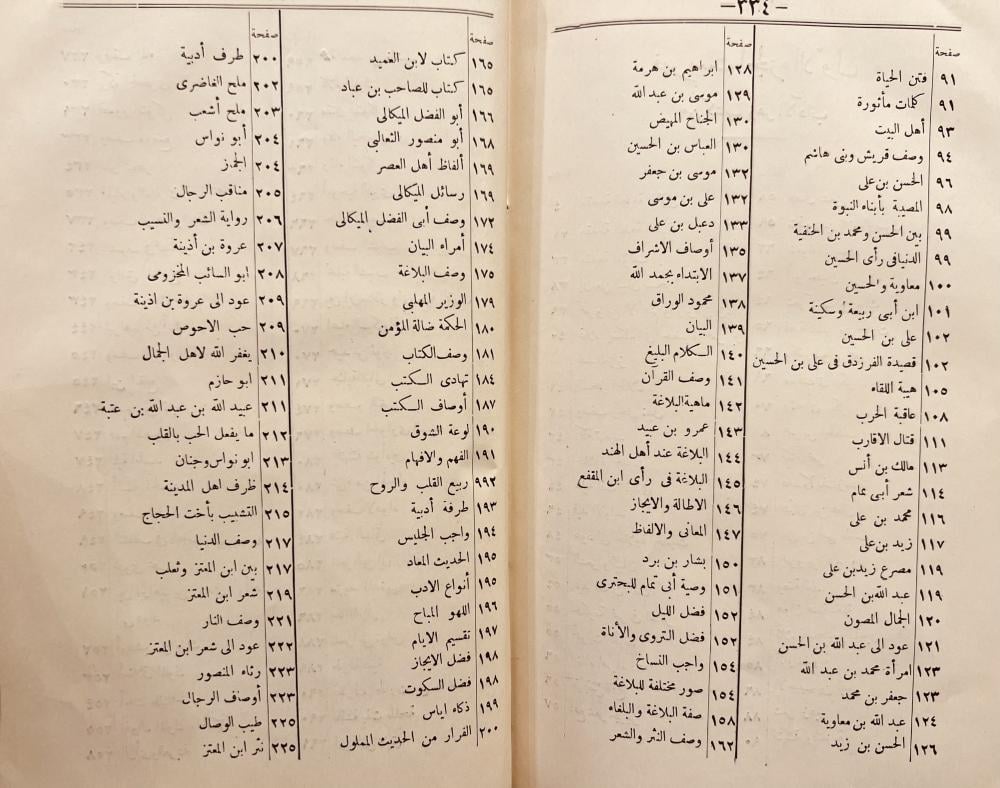 -٢٣٤-
صفحة
٩١ فتن الحياة
٩١ كلمات مأثورة
٩٣ أهل البيت
٩٤ وصف قريش وبنى هاشم
٩٦ الحسن بن على
٩٨ المصيبة بأبناء النبوة
٩٩ بين الحسن ومحمد بن الحنفية
٩٩ الدنيا فى رأى الحسين
١٠٠ معاوية والحسين
١٠١ ابن أبى ربيعة وسكينة
١٠٢ على بن الحسين
١٠٢ قصيدة الفرزدق فى على بن الحسين
١٠٥ هيبة اللقاء
١٠٨ عاقبة الحرب
١١١ قتال الاقارب
١١٣ مالك بن أنس
١١٤ شعر أبى تمام
١١٦ محمد بن على
١١٧ زيد بن على
١١٩ مصرع زيد بن على
١١٩ عبد الله بن الحسن
١٢٠ الجمال المصون
١٢١ عود الى عبد الله بن الحسن
١٢٣ امرأة محمد بن عبد الله
١٢٣ جعفر بن محمد
١٢٤ عبد الله بن معاوية
١٢٦ الحسن بن زيد
صفحة
١٢٨ ابراهيم بن هرمة
١٢٩ موسى بن عبد الله
١٣٠ الجناح المهيض
١٣٠ العباس بن الحسين
١٣٢ موسى بن جعفر
١٣٢ على بن موسى
١٣٣ دعبل بن على
١٣٥ أوصاف الاشراف
١٣٧ الابتداء بحمد الله
١٣٨ محمود الوراق
١٣٩ البيان
١٤٠ الكلام البليغ
١٤١ وصف القرآن
١٤٢ ماهية البلاغة
١٤٣ عمرو بن عبيد
١٤٤ البلاغة عند أهل الهند
١٤٥ البلاغة فى رأى ابن المقفع
١٤٦ الاطالة والايجاز
١٤٧ المعانى والالفاظ
١٥٠ بشار بن برد
١٥١ وصية أبى تمام للبحترى
١٥٢ فضل الليل
١٥٢ فضل التروى والأناة
١٥٤ واجب النساخ
١٥٤ صور مختلفة للبلاغة
١٥٨ صفة البلاغة والبلغاء
١٦٢ وصف النثر والشعر
صفحة
١٦٥ كتاب لابن العميد
١٦٥ كتاب للصاحب بن عباد
١٦٦ أبو الفضل الميكالى
١٦٨ أبو منصور الثعالبى
١٦٩ ألفاظ أهل العصر
١٦٩ رسائل الميكالى
١٧٢ وصف أبى الفضل الميكالى
١٧٤ أمراء البيان
١٧٥ وصف البلاغة
١٧٩ الوزير المهلبى
١٨٠ الحكمة ضالة المؤمن
١٨١ وصف الكتاب
١٨٤ تهادى الكتب
١٨٧ أوصاف الكتب
١٩٠ لوعة الشوق
١٩١ الفهم والافهام
٩٩٢ ربيع القلب والروح
١٩٣ طرفة أدبية
١٩٤ واجب الجليس
١٩٥ الحديث المعاد
١٩٥ أنواع الادب
١٩٦ اللهو المباح
١٩٧ تقسيم الايام
١٩٨ فضل الايجاز
١٩٨ فضل السكوت
١٩٩ ذكاء اياس
٢٠٠ الفرار من الحديث المملول
صفحة
٢٠٠ طرف أدبية
٢٠٢ ملح الغاضرى
٢٠٣ ملح أشعب
٢٠٤ أبو نواس
٢٠٤ الجماز
٢٠٥ مناقب الرجال
٢٠٦ رواية الشعر والنسيب
٢٠٧ عروة بن أذينة
٢٠٨ ابو السائب المخزومى
٢٠٩ عود الى عروة بن اذينة
٢٠٩ حب الاحوص
٢١٠ يغفر الله لاهل الجمال
٢١١ ابو حازم
٢١١ عبيد الله بن عبد الله بن عتبة
٢١٢ ما يفعل الحب بالقلب
٢١٣ ابو نواس وجنان
٢١٤ ظرف اهل المدينة
٢١٥ التشبيب بأخت الحجاج
٢١٧ وصف الدنيا
٢١٧ بين ابن المعتز وثعلب
٢١٩ شعر ابن المعتز
٢٢١ وصف النار
٢٢٢ عود الى شعر ابن المعتز
٢٢٣ رثاء المنصور
٢٢٣ أوصاف الرجال
٢٢٥ طيب الوصال
٢٢٥ نثر ابن المعتز